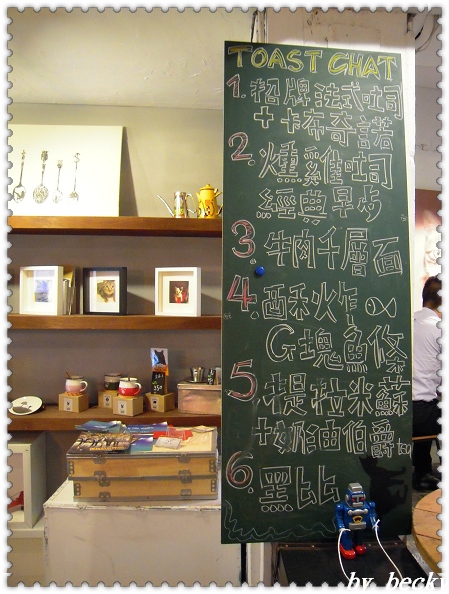 TOAST CHAT
1. 招牌法式吐司
+卡布奇諾
2. 燻雞吐司
經典早步
3. 牛肉千層面
4. 酥炸
G塊魚條
5. 提拉米蘇
+奶油伯爵
6. 墨比比
by beck